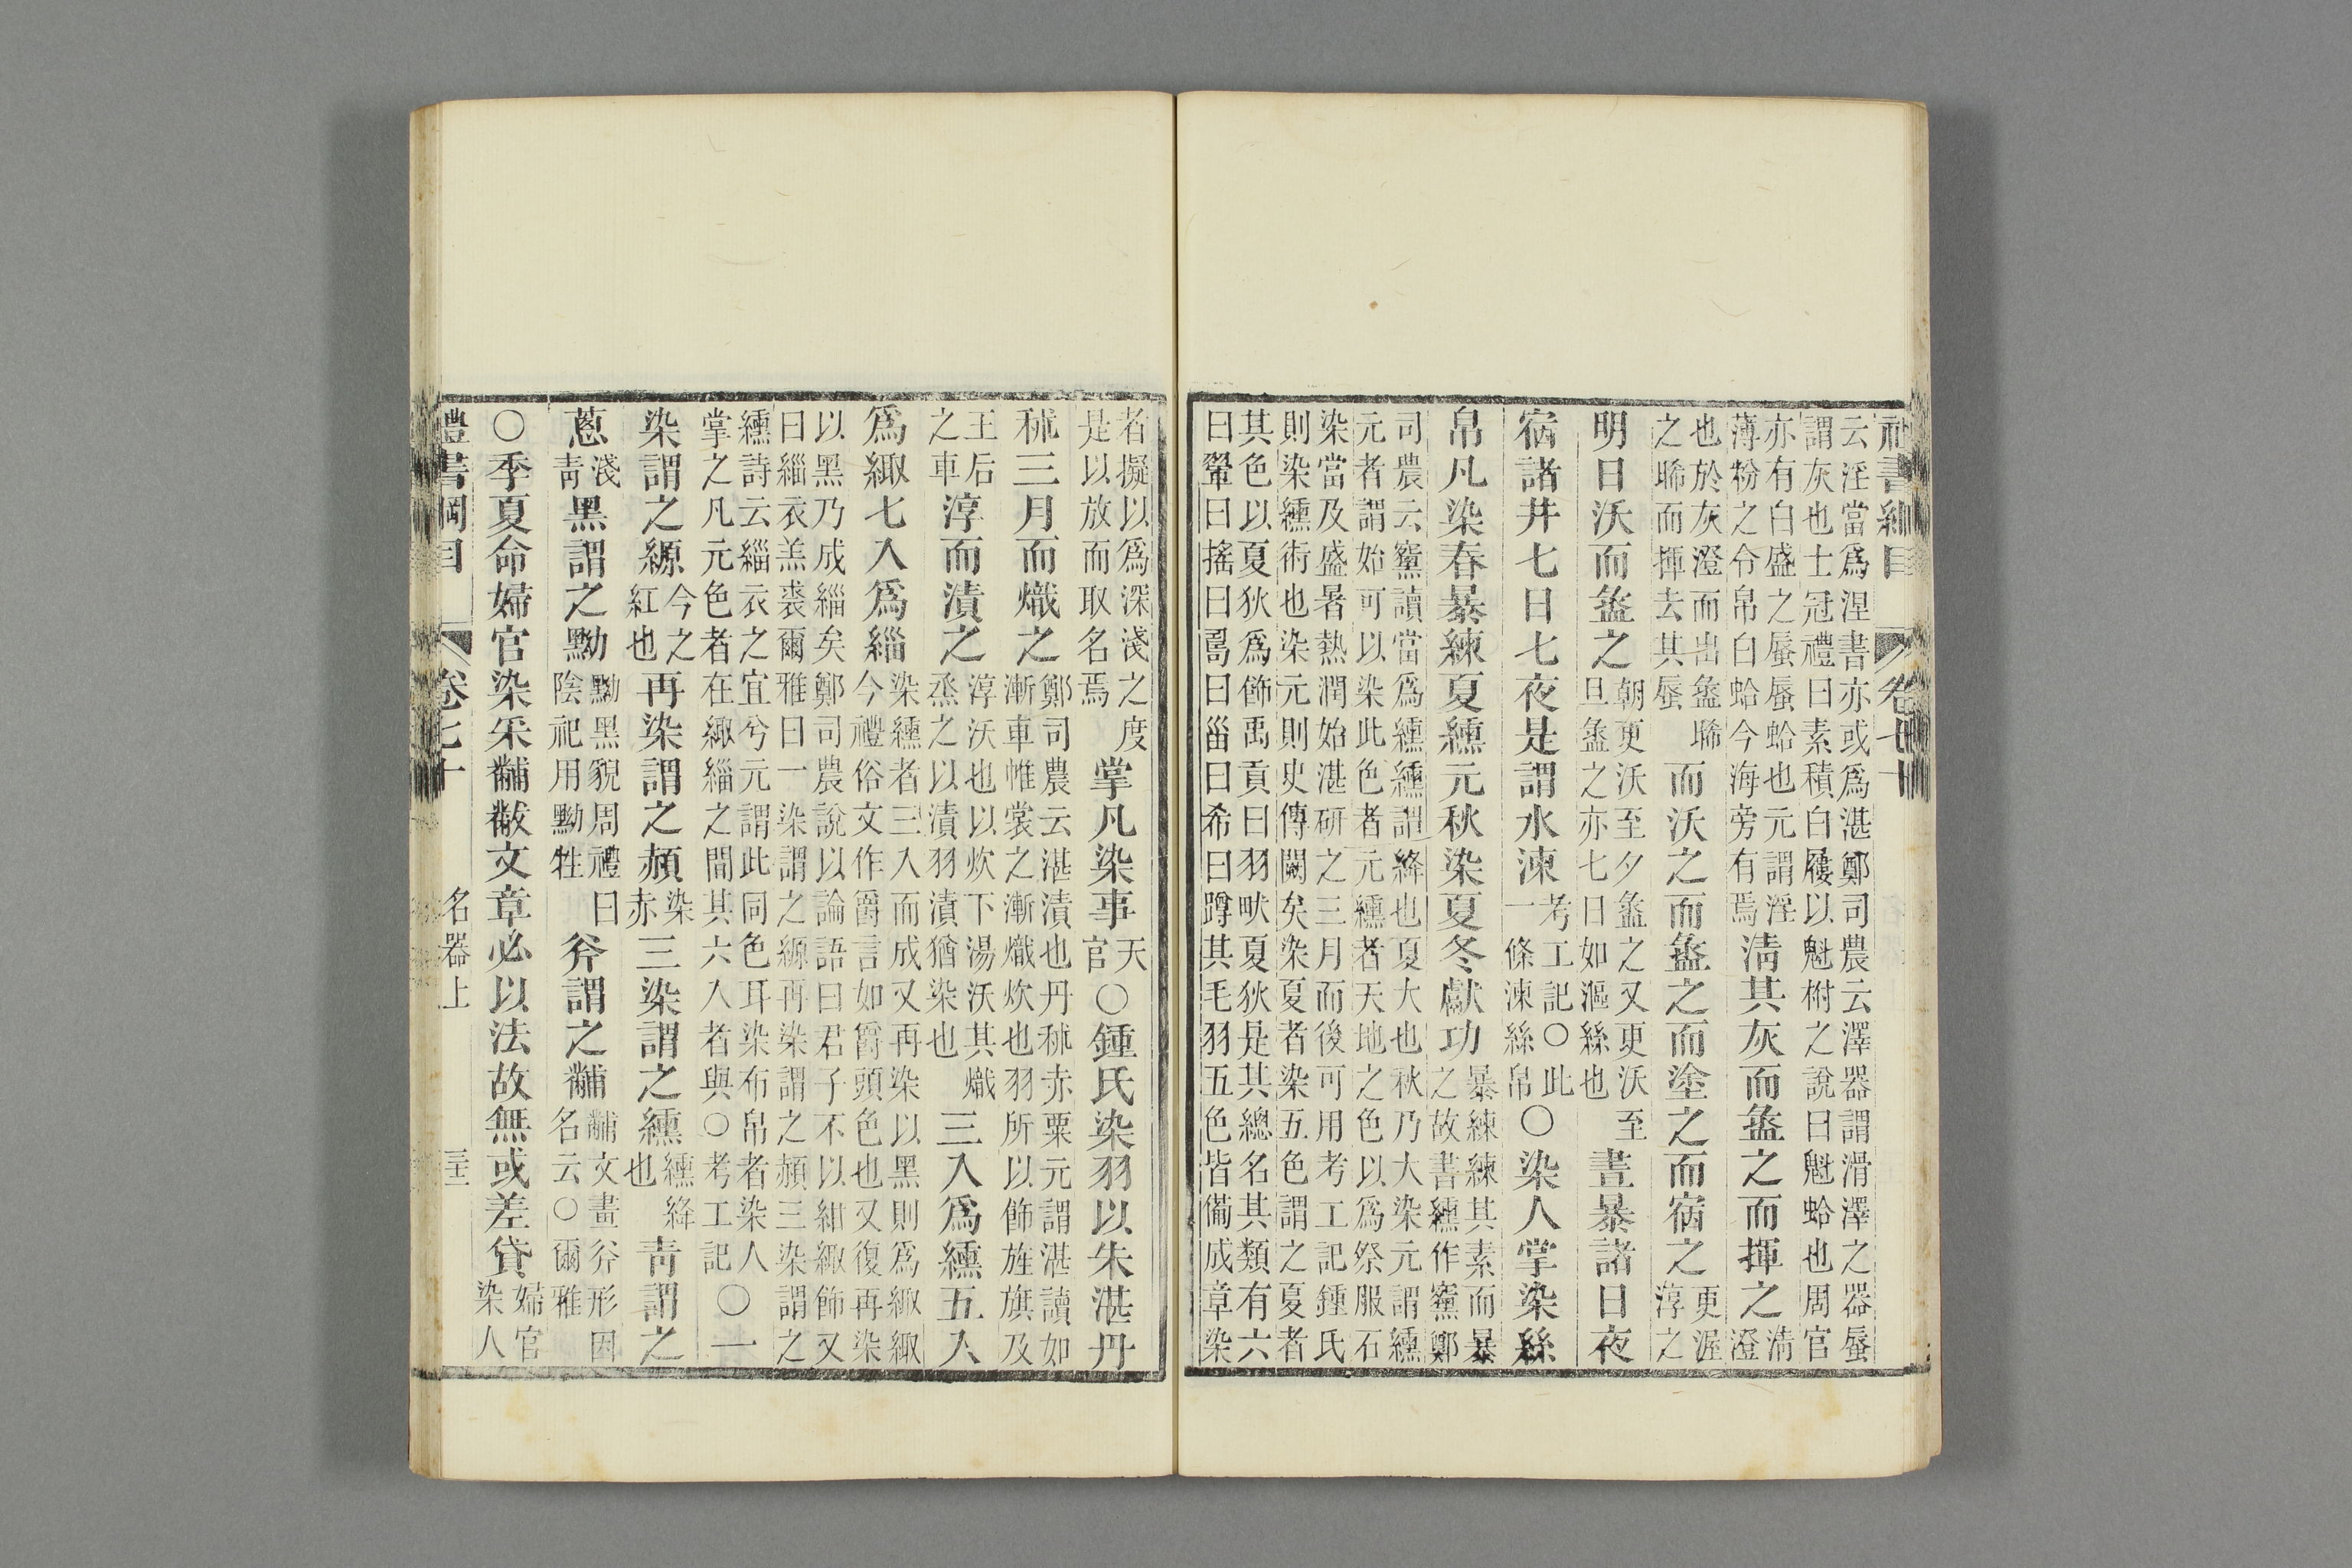 禮書綱目 卷七十
云淫當爲涅書亦或爲湛鄭司農云澤器謂滑澤之器蜃
謂灰也士冠禮曰素積白屨以魁柎之說曰魁蛤也周官
亦有白盛之蜃蜃蛤也元謂淫薄粉之令帛白蛤今海旁有焉清其灰而盝之而揮之清澄
也於灰澄而出盝晞之晞而揮去其蜃而沃之而盝之而塗之而宿之更渥淳之
明日沃而盝之朝更沃至夕盝之又更沃至旦盝之亦七日如漚絲也晝暴諸日夜
宿諸井七日七夜是謂水湅考工記○此一條湅絲帛○染人掌染絲
帛凡染春暴練夏纁元秋染夏冬獻功暴練練其素而暴之故書纁作䵫鄭
司農云䵫讀當爲纁纁謂絳也夏大也秋乃大染元謂纁
元者謂始可以染此色者元纁者天地之色以爲祭服石
染當及盛暑熱潤始湛研之三月而後可用考工記鍾氏
則染纁術也染元則史傳闕矣染夏者染五色謂之夏者
其色以夏狄爲飾禹貢曰羽畎夏狄是其總名其類有六
曰翬曰搖曰𠷎曰甾曰希曰蹲其毛羽五色皆備成章染
者擬以爲深淺之度是以放而取名焉掌凡染事天官○鍾氏染羽以朱湛丹
秫三月而熾之鄭司農云湛漬也丹秫赤粟元謂湛讀如漸車帷裳之漸熾炊也羽所以飾旌旗及
王后之車淳而漬之淳沃也以炊下湯沃其熾烝之以漬羽漬猶染也三入爲纁五入
爲緅七入爲緇染纁者三入而成又再染以黑則爲緅緅今禮俗文作爵言如爵頭色也又復再染
以黑乃成緇矣鄭司農說以論語曰君子不以紺緅飾又
曰緇衣羔裘爾雅曰一染謂之縓再染謂之赬三染謂之
纁詩云緇衣之宜兮元謂此同色耳染布帛者染人
掌之凡元色者在緅緇之間其六入者與○考工記○一
染謂之縓今之紅也再染謂之赬染赤三染謂之纁纁絳也青謂之
蔥淺青黑謂之黝黝黑貌周禮曰陰祀用黝牲斧謂之黼黼文畫斧形因名云○爾雅
○季夏命婦官染采黼黻文章必以法故無或差貸婦官染人
禮書綱目 卷七十 名器上 三十二